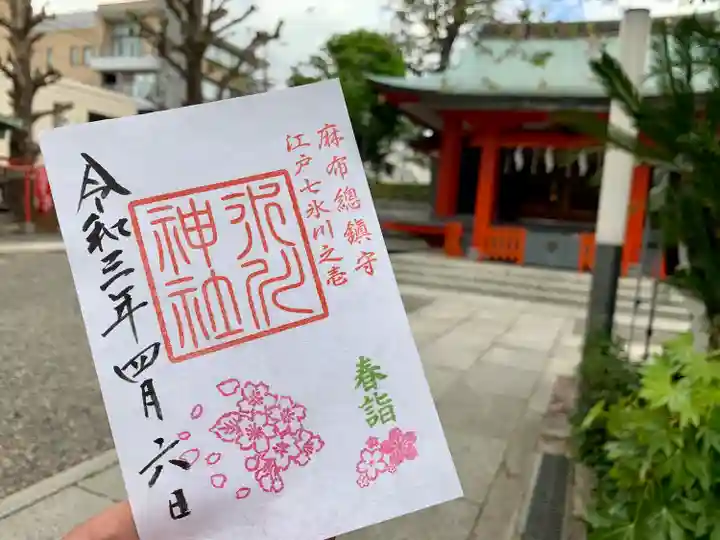 麻布總鎮守
江戸七氷川之壱
氷川
神社
春詣
令和三年四月六日